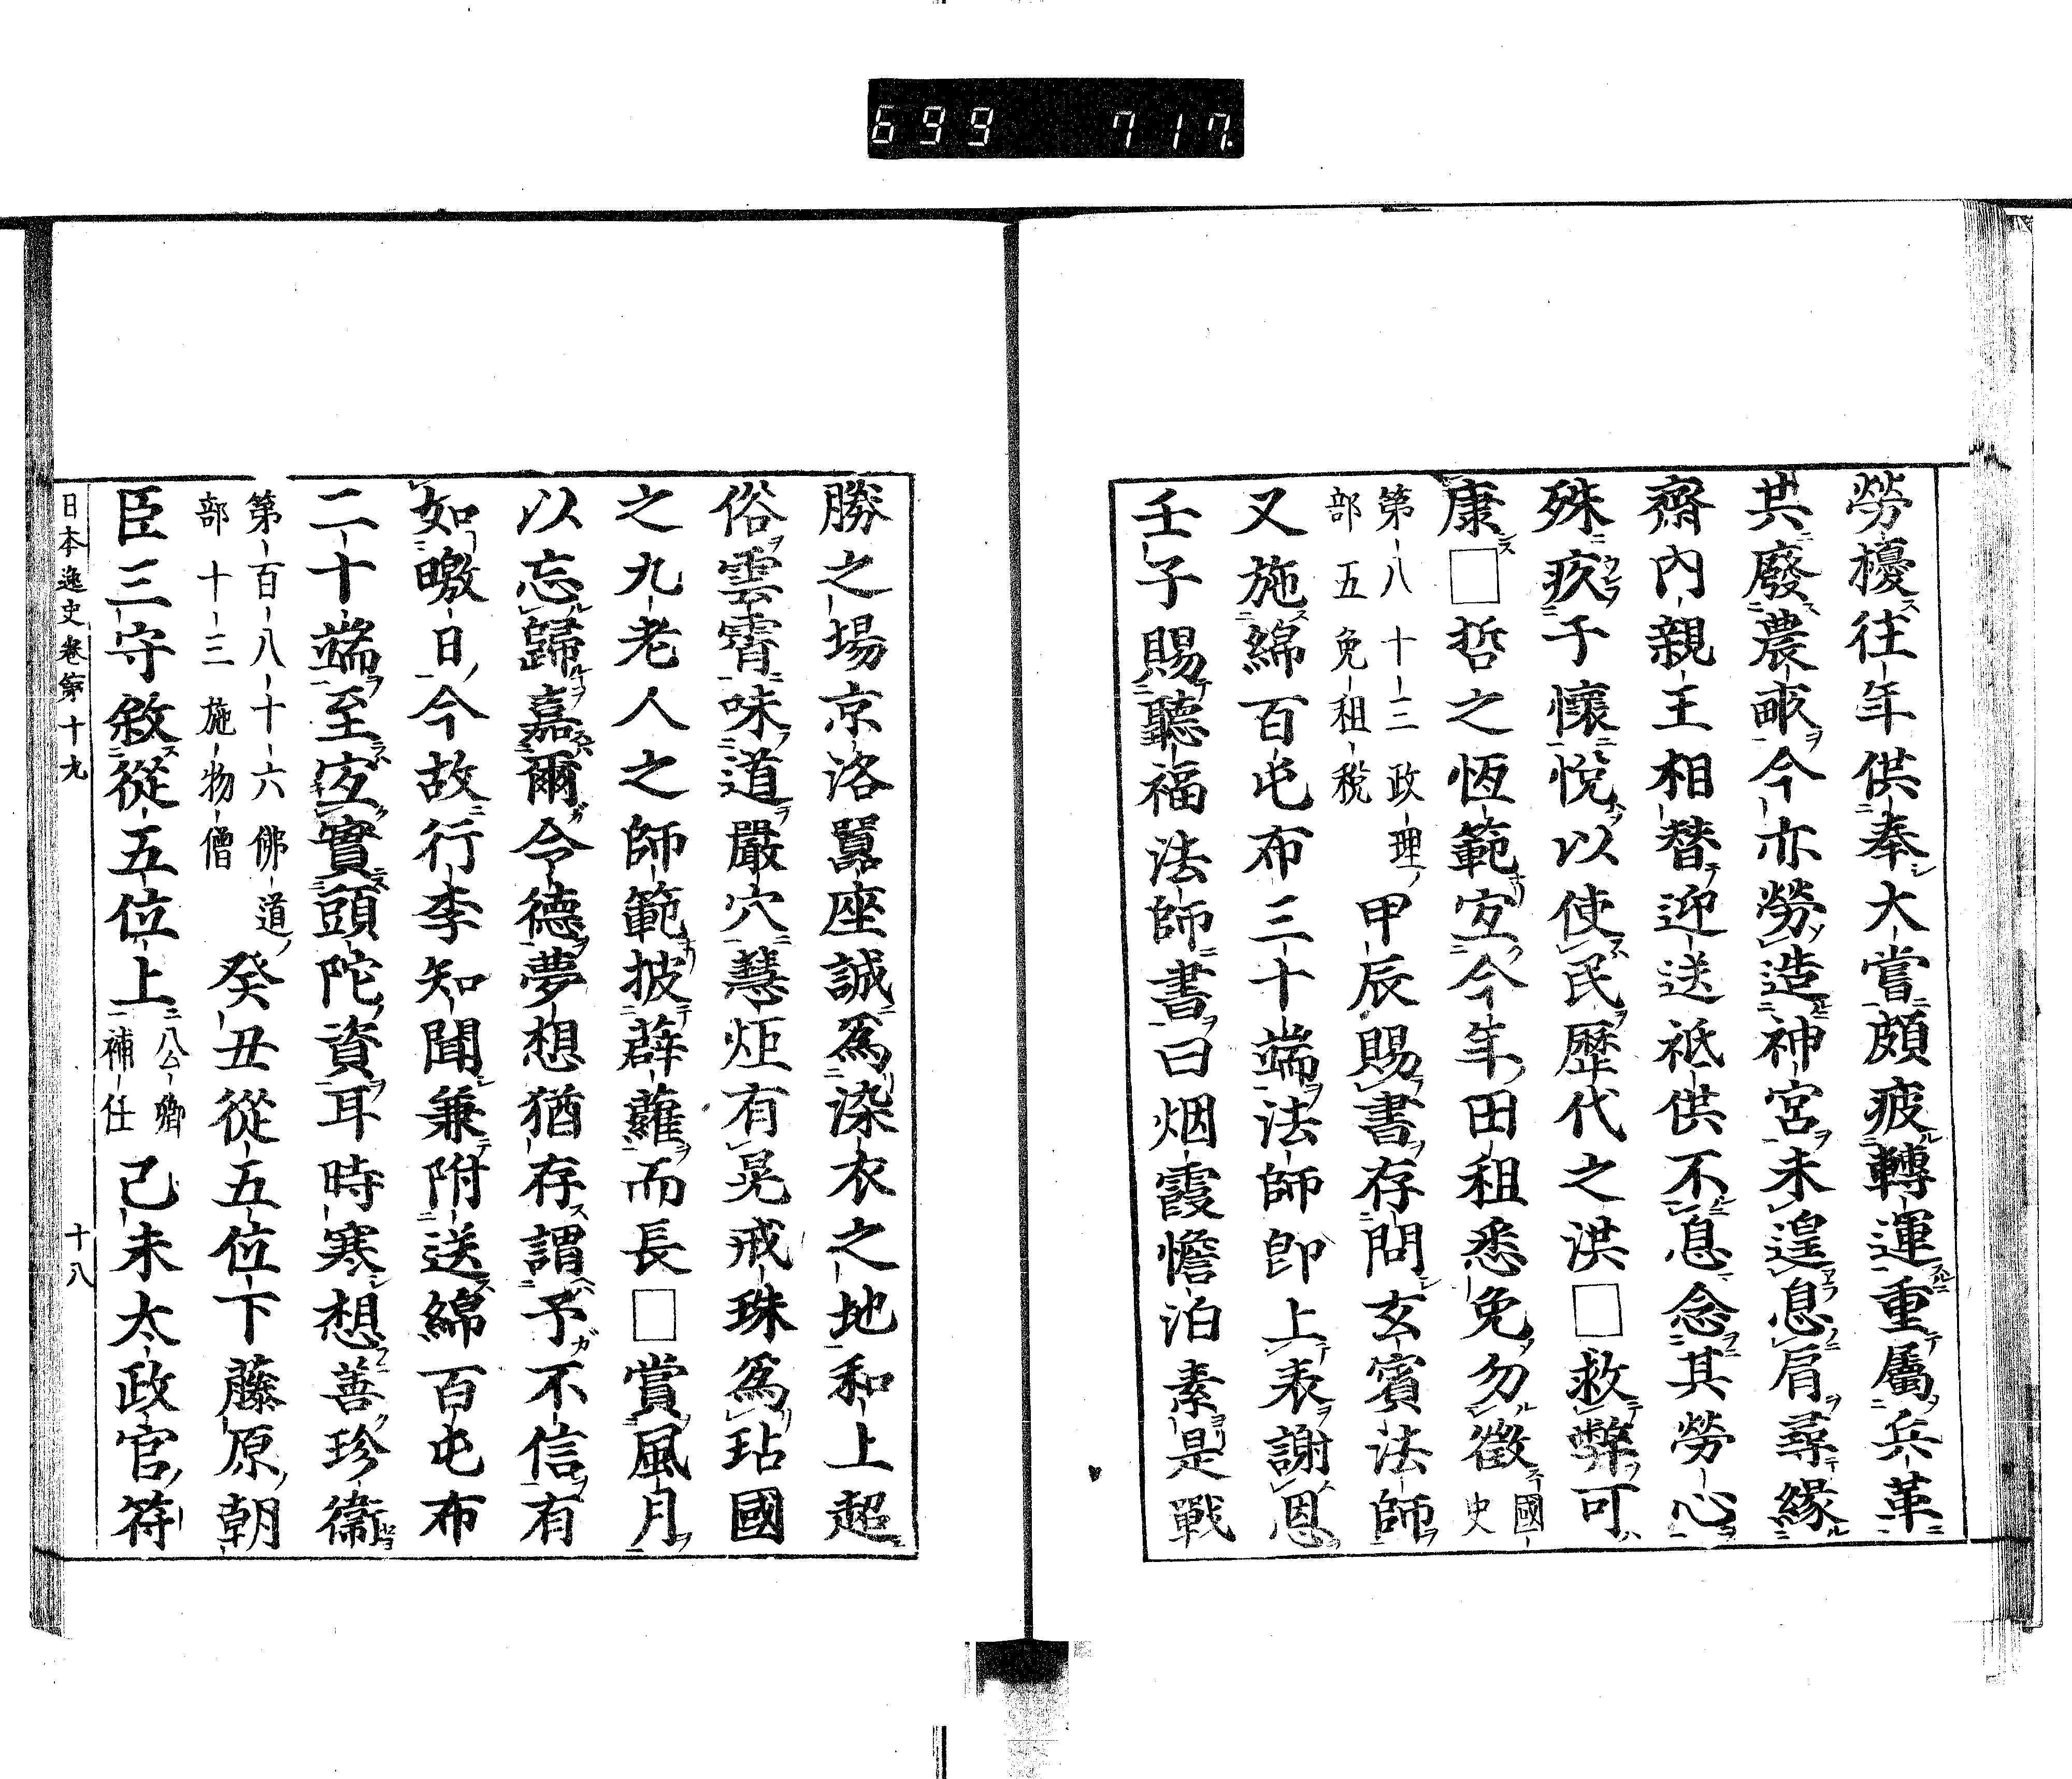 699 717
勞擾往年供奉大嘗頗疲轉運重屬兵革
共廢農畝今亦勞造神宮未遑息肩尋緣
齋內親王相替迎送祗供不息念其勞心
殊疚于懷悅以使民歷代之洪□救弊可
康□哲之恆範宐今年田租悉免勿徵國史
第八十三政理部五免租稅甲辰賜書存問玄賓法師
又施綿百屯布三十端法師即上表謝恩
壬子賜聽福法師書曰烟霞憺泊素是戰
勝之場京洛囂座誠爲染衣之地和上超
俗雲霄味道巖穴慧炬有晃戒珠爲玷國
之九老人之師範披薜蘿而長□賞風月
以忘歸嘉爾令德夢想猶存謂予不信有
如曒日今故行李知聞兼附送綿百屯布
二十端至宐實頭陀資耳時寒想善珍衞
第百八十六佛道部十三施物僧癸丑從五位下藤原朝
臣三守敘從五位上公卿補任己未太政官符
日本逸史卷第十九 十八